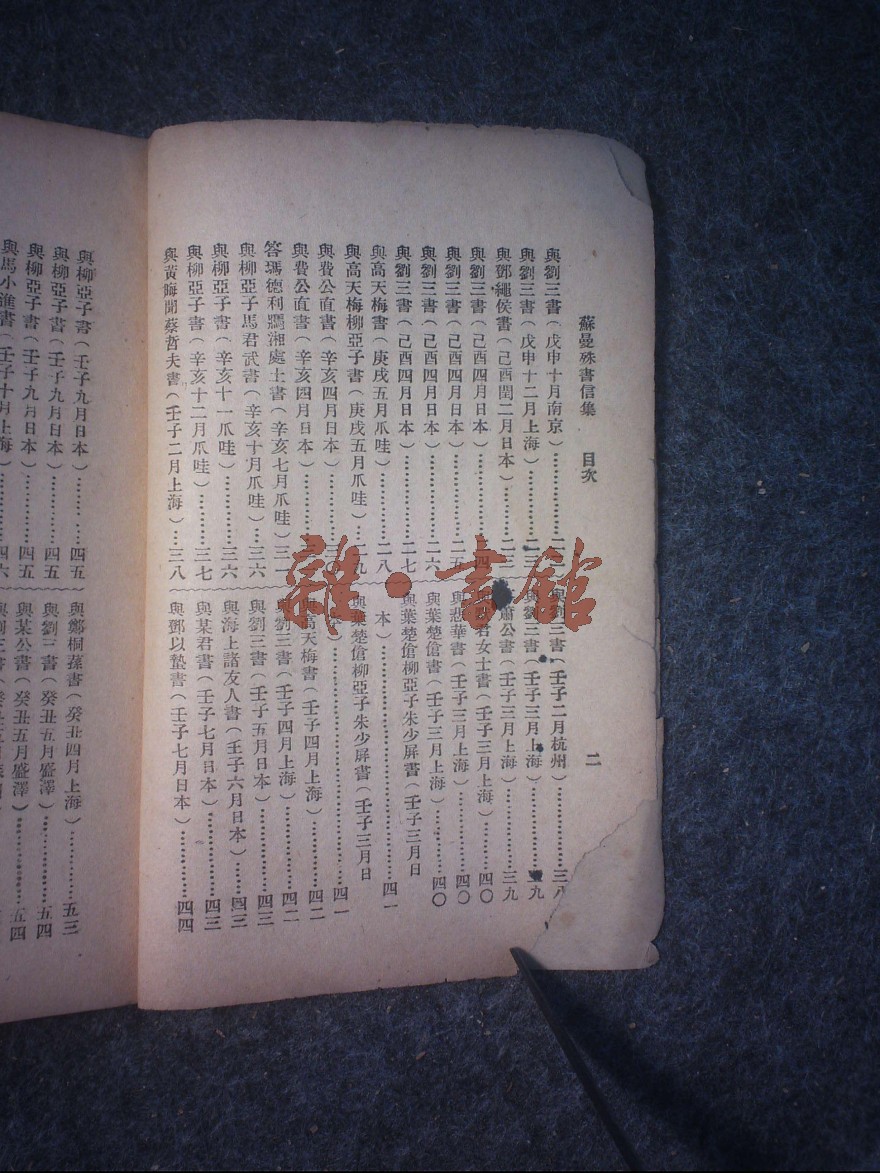 蘇曼殊書信集 目次 二
與劉三書（戊申十月南京）
與劉三書（戊申十二月上海）
與鄧繩侯書（己酉閏二月日本）…………二三
與劉三書（己酉四月日本）
與劉三書（己酉四月日本）…………二五
與劉三書（己酉四月日本）…………二六
與劉三書（己酉四月日本）…………二七
與高天梅書（庚戌五月爪哇）…………二八
與高天梅柳亞子書（庚戌五月爪哇）
與費公直書（辛亥四月日本）
與費公直書（辛亥四月日本）
答瑪德利瑪湘處士書（辛亥七月爪哇）
與柳亞子馬君武書（辛亥十月爪哇）…三六
與柳亞子書（辛亥十一爪哇）…………三六
與柳亞子書（辛亥十二月爪哇）…………三七
與黃晦聞蔡哲夫書（壬子二月上海）…三八
與劉三書（壬子二月杭州）…………三八
與劉三書（壬子三月上海）
蕭公書（壬子三月上海）…………三九
君女士書（壬子三月上海）……四〇
華書（壬子三月上海）…………四〇
與葉楚傖書（壬子三月上海）…………四〇
與葉楚傖柳亞子朱少屏書（壬子三月日
本）…………四一
與葉楚傖柳亞子朱少屏書（壬子三月日
…………四一
與高天梅書（壬子四月上海）…………四二
與劉三書（壬子四月上海）…………四二
與劉三書（壬子五月日本）…………四三
與海上諸友人書（壬子六月日本）……四三
與某君書（壬子七月日本）…………四三
與鄧以蟄書（壬子七月日本）…………四四
與柳亞子書（壬子九月日本）…………四五
與柳亞子書（壬子九月日本）…………四五
與柳亞子書（壬子九月日本）…………四五
與馬小進書（壬子十月上海）…………四六
與鄭桐蓀書（癸丑四月上海）…………五三
與劉三書（癸丑五月盛澤）…………五四
與某公書（癸丑五月盛澤）…………五四
雜·書館